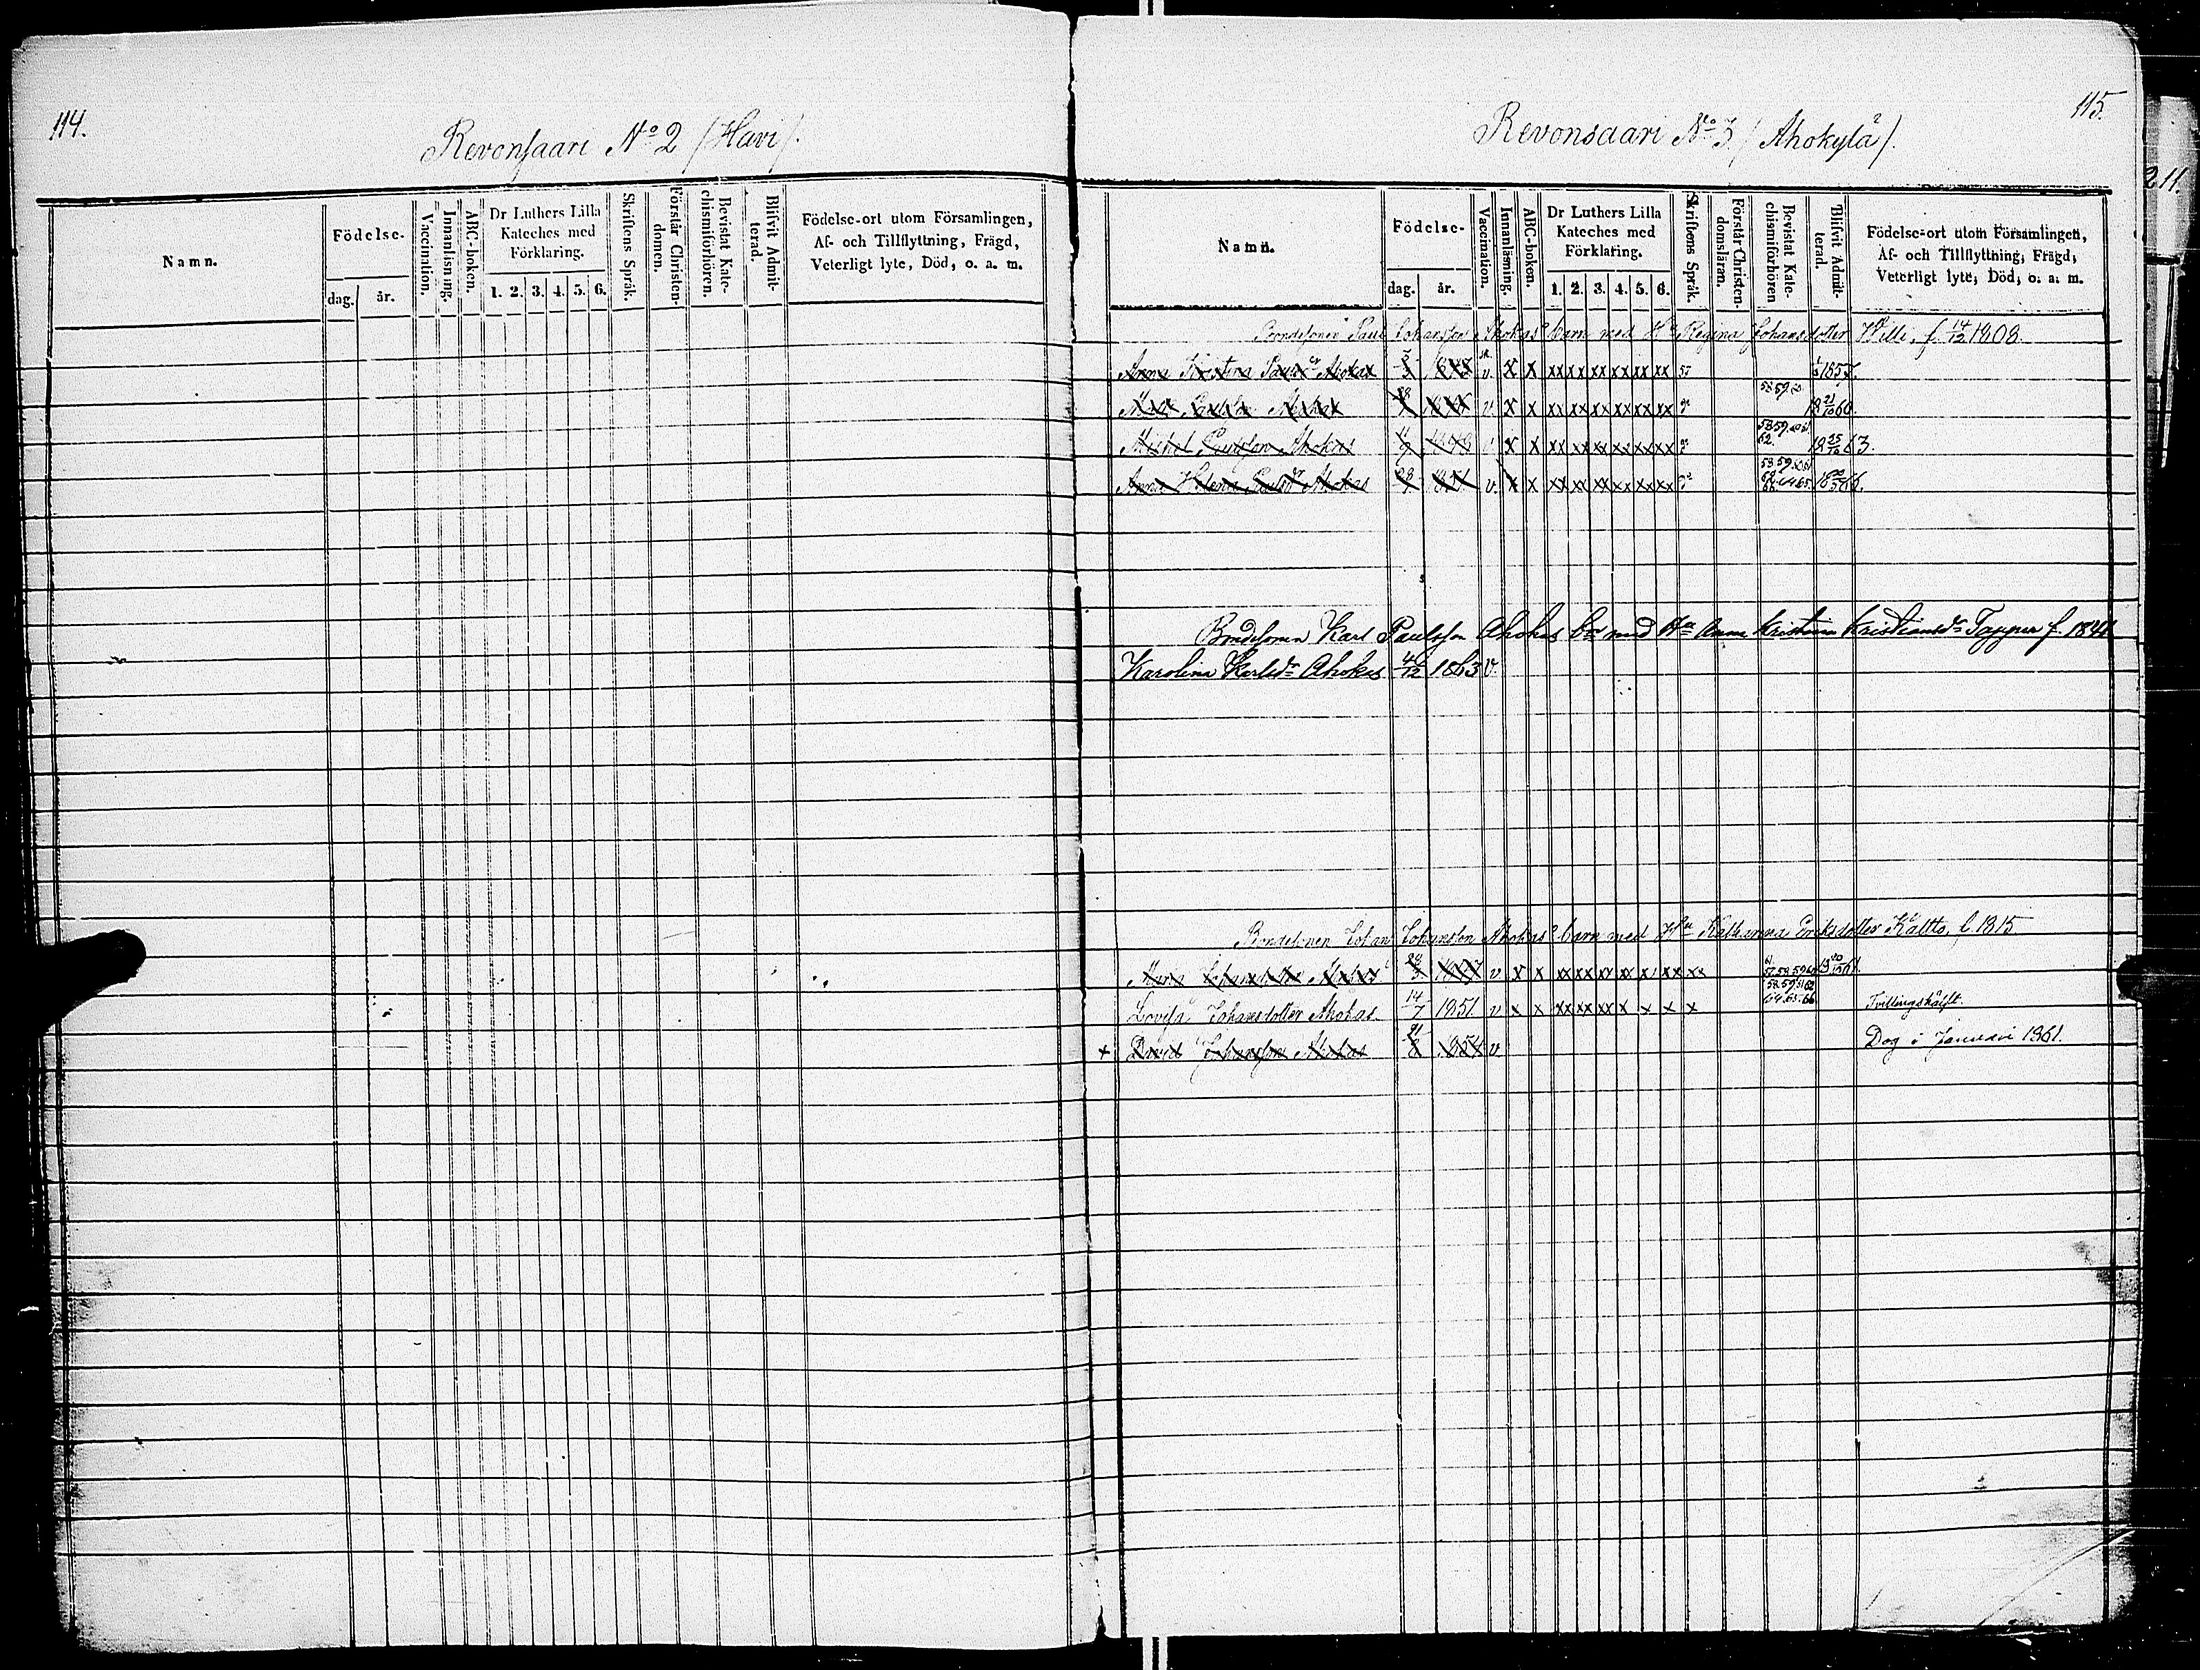 114.
Revonsaari No 2 /Havi/.
Namn.
Födelse-
dag.
år.
Vaccination.
Innanläsning.
ABC-boken.
Dr Luthers Lilla
Kateches med
Förklaring.
1. 2. 3. 4. 5. 6.
Skriftens Språk.
Förstår Christen-
domen.
Bevistat Kate-
chismiförhören.
Blifvit Admit-
terad.
Födelse-ort utom Församlingen,
Af- och Tillflyttning, Frägd,
Veterligt lyte, Död, o. a. m.
115.
Revonsaari No 3 /Ahokylä/.
211.
Namn.
Födelse-
dag.
år.
Vaccination.
Innanläsning.
ABC-boken.
Dr Luthers Lilla
Kateches med
Förklaring.
1. 2. 3. 4. 5. 6.
Skriftens Språk.
Förstår Christen-
domsläran.
Bevistat Kate-
chismiförhören
Blifvit Admit-
terad.
Födelse-ort utom Församlingen,
Af- och Tillflyttning, Frägd,
Veterligt lyte, Död, o. a. m.
Bondesonen Paul Johansson Ahokas' barn med Hu Regina Johansdotter Willi, f. 14/12 1808.
Anna Kristina Paulsdr Ahokas v. x x xx xx xx xx xx xx 1857.
Ahokas v. x x xx xx xx xx xx xx 58 59 60 18 21/10 60.
Michel Paulsson Ahokas v x x xx xx xx xx xx xx 58 59 60 61 62. 18 25/10 63.
Anna Helena Paulsdr Ahokas v. x x xx xx xx xx xx xx 58 59 60 61 64 65 66
Bondesonen Karl Paulsson Ahokas bn med Hu Anna Kristina Kristiansdr Topper f. 1844
Karolina Karlsdr Ahokas 4/12 1863 v
Bondesonen Johan Johansson Ahokas' barn med Hu Katharina Eriksdotter Kältto, f. 1815
Maria Johansdotter Ahokas 28/3 1847 v x x xx xx xx xx x xx xx 57 58 59 60 61
Lovisa Johansdotter Ahokas 14/7 1851 v x x xx xx xx x x x x 58 59 61 62 64 65 66 Tvillingshälft.
+ David Johansson Ahokas 21/8 1854 v Dog i Januari 1861.